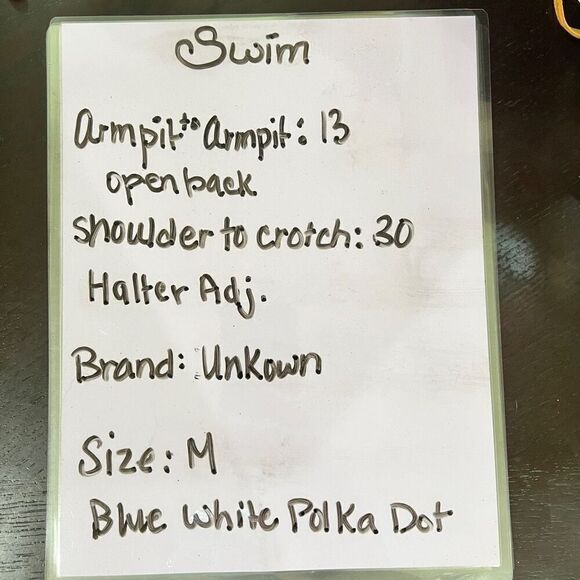 Swim
Armpit to Armpit: 13
open back
shoulder to crotch: 30
Halter Adj.
Brand: Unkown
Size: M
Blue White Polka Dot